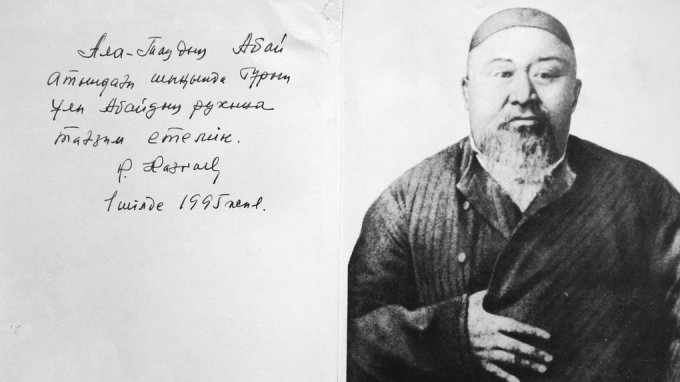 Ала-Таудың Абай
атындағы шыңында тұрып
ұлы Абайдың рухына
тағзым етемін.
1 шілде 1995 жыл.